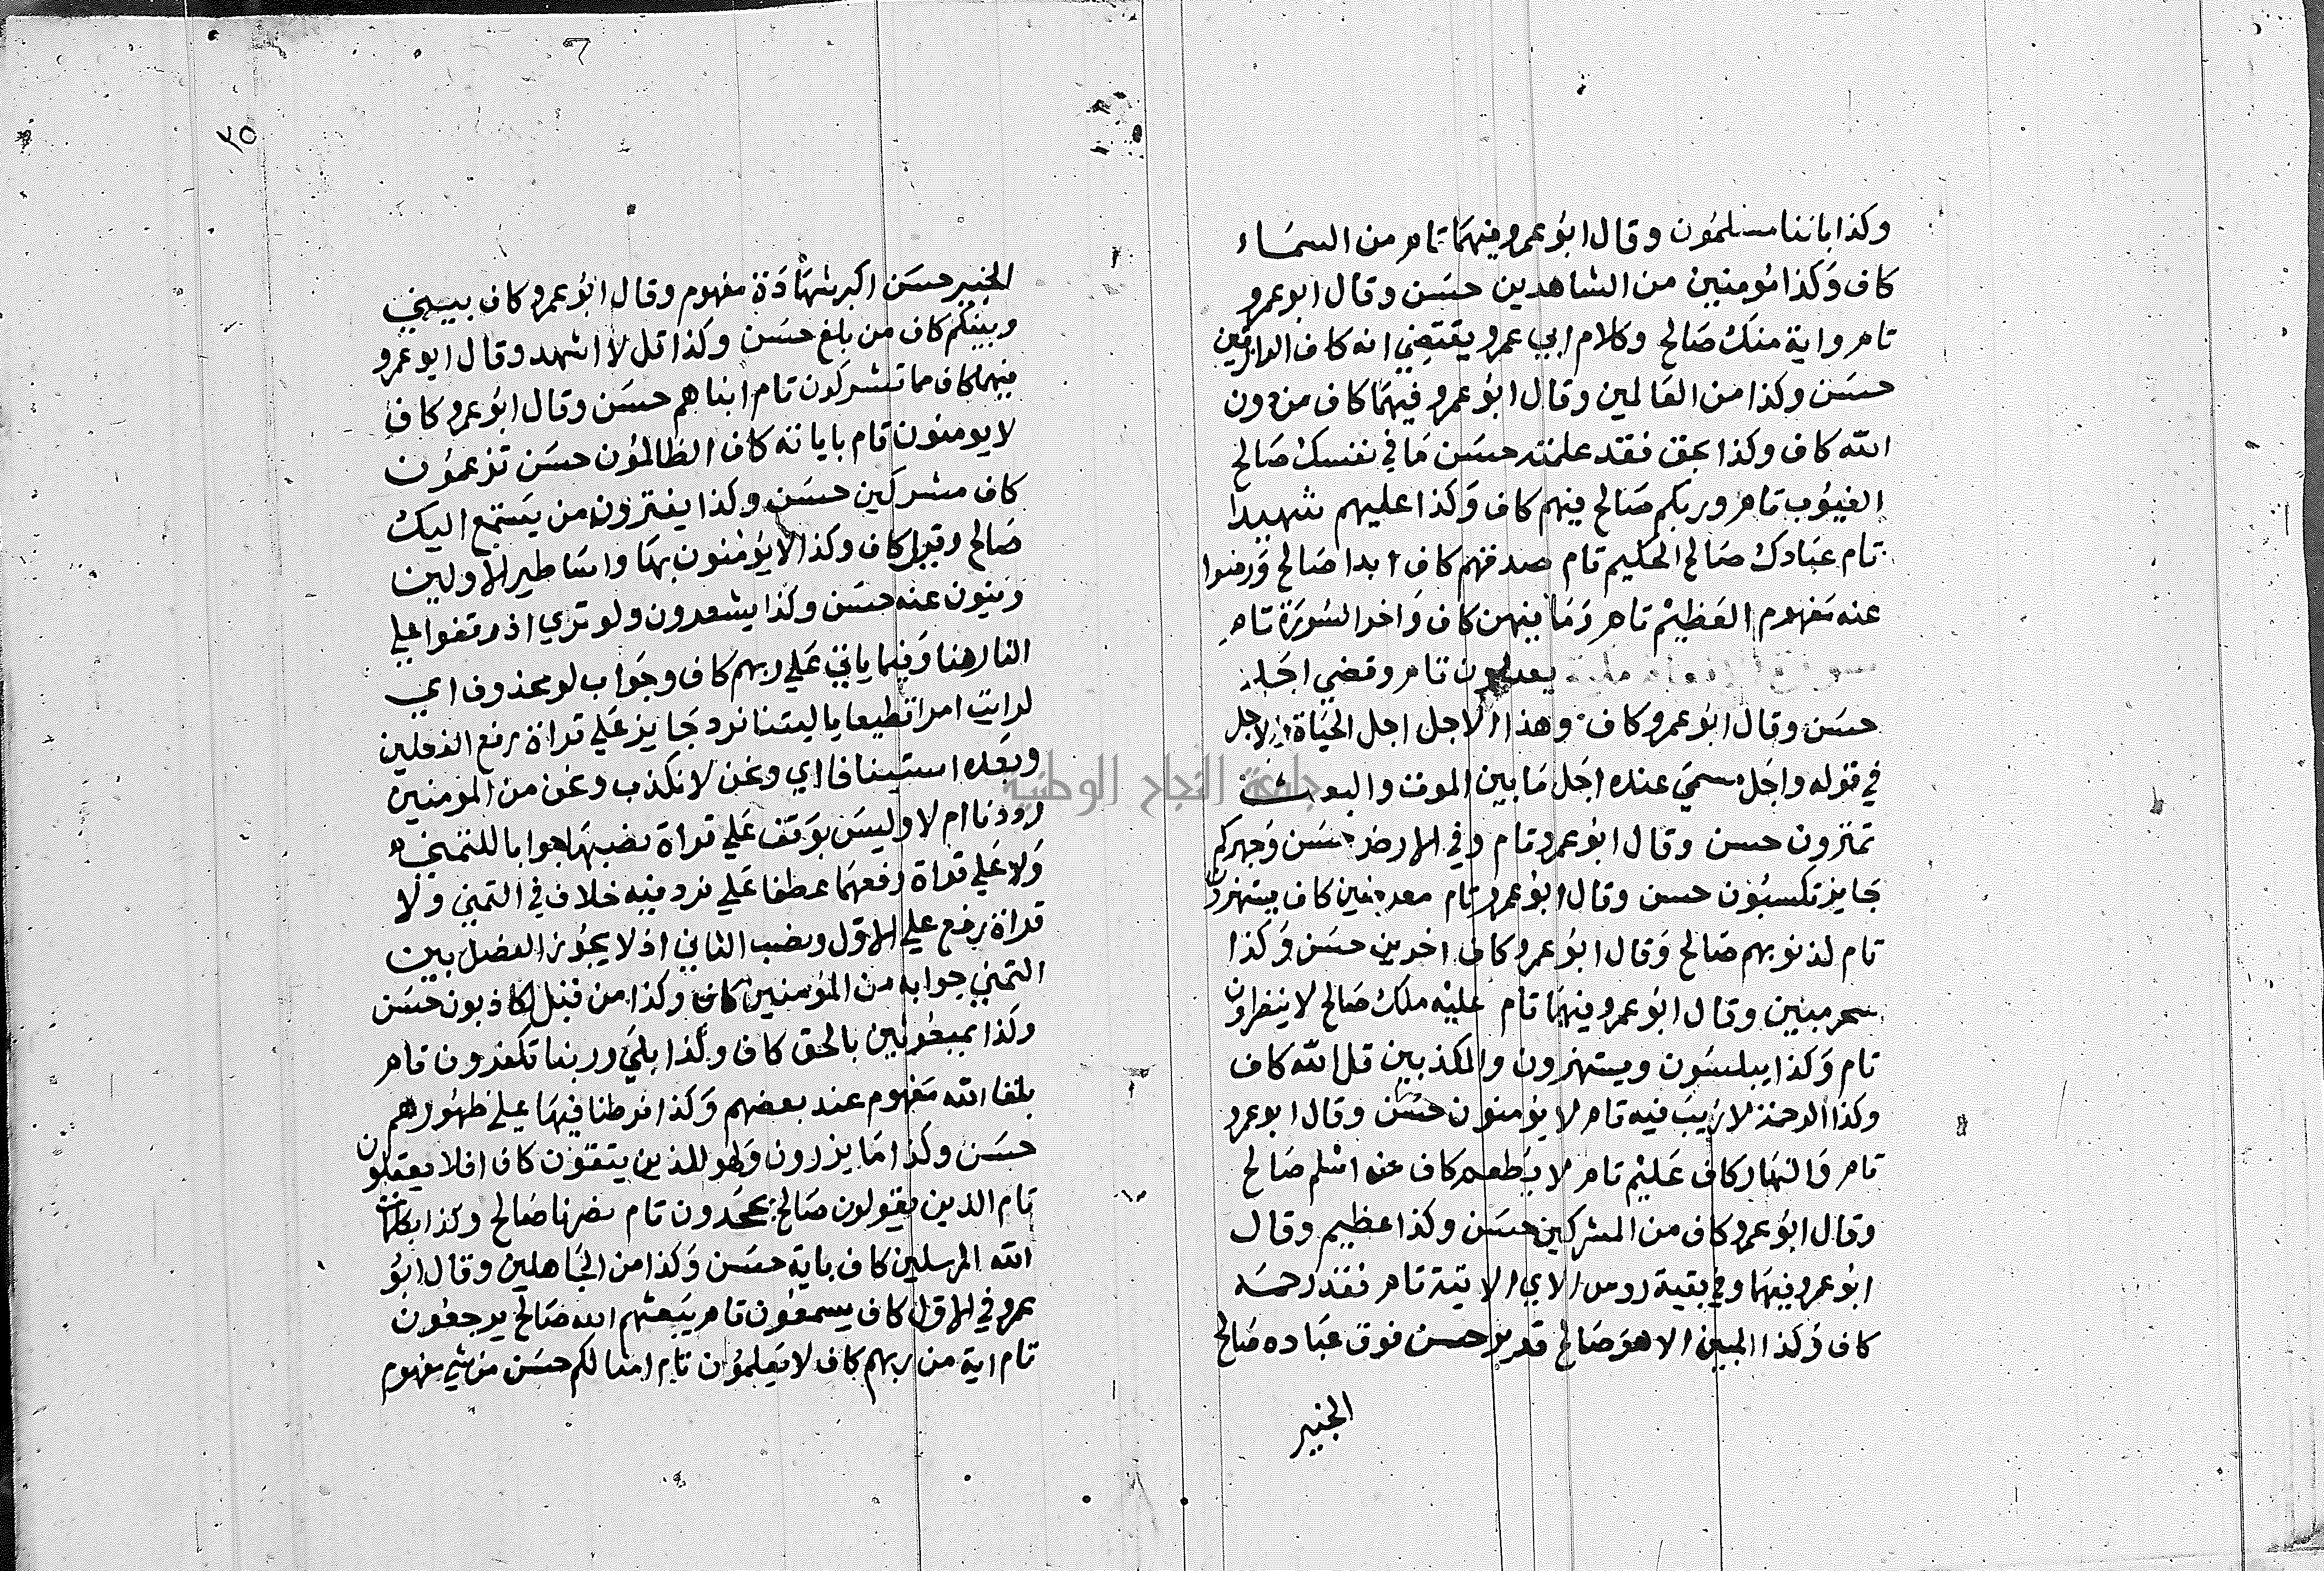 وكذا باننا مسلمون وقال ابو عمرو فيهما تام من السماء
كاف وكذا مؤمنين من الشاهدين حسن وقال ابو عمرو
تام واية منك صالح وكلام ابي عمرو يقتضي انه كاف الرازقين
حسن وكذا من العالمين وقال ابو عمرو فيهما كاف من دون
الله كاف وكذا بحق فقد علمته حسن ما في نفسك صالح
الغيوب تام وربكم صالح فيهم كاف وكذا عليهم شهيدا
تام عبادك صالح الحكيم تام صدقهم كاف ابدا صالح ورضوا
عنه مفهوم العظيم تام وما فيهن كاف واخر السورة تام
سورة الانعام مكية يعدلون تام وقضي اجلا
حسن وقال ابو عمرو كاف وهذا الاجل اجل الحياة والاجل
في قوله واجل مسمي عنده اجل ما بين الموت والبعث
تمترون حسن وقال ابو عمرو تام وفي الارض حسن وجهركم
جايز تكسبون حسن وقال ابو عمرو تام معرضين كاف يستهزون
تام لذنوبهم صالح وقال ابو عمرو كاف اخرين حسن وكذا
سحر مبين وقال ابو عمرو فيهما تام عليه ملك صالح لا ينظرون
تام وكذا يبلسون ويستهزون والمكذبين قل الله كاف
وكذا الرحمة لا ريب فيه تام لا يؤمنون حسن وقال ابو عمرو
تام والنهار كاف عليم تام لا يطعم كاف من اسلم صالح
وقال ابو عمرو كاف من المشركين حسن وكذا عظيم وقال
ابو عمرو فيهما وفي بقية روس الاي الاتية تام فقد رحمه
كاف وكذا المبين الا هو صالح قدير حسن فوق عباده صالح
الخبير
٢٥
الخبير حسن اكبر شهادة مفهوم وقال ابو عمرو كاف بيني
وبينكم كاف من بلغ حسن وكذا قل لا اشهد وقال ابو عمرو
فيهما كاف مما تشركون تام ابناهم حسن وقال ابو عمرو كاف
لا يومنون تام باياته كاف الظالمون حسن تزعمون
كاف مشركين حسن وكذا يفترون من يستمع اليك
صالح وقرا كاف وكذا لا يؤمنون بها واساطير الاولين
وينون عنه حسن وكذا يشعرون ولو تري اذ وقفوا علي
النار هنا وفيما ياتي علي ربهم كاف وجواب لو محذوف اي
لرايت امرا فظيعا يا ليتنا نرد جايز علي قراة رفع الفعلين
وبعده استينافا اي ونحن لا نكذب ونحن من المومنين
رددنا ام لا وليس بوقف علي قراة نصبهما جوابا للتمني
ولا علي قراة رفعهما عطفا علي نرد فيه خلاف في التمني ولا
قراة رفع علي الاول ونصب الثاني اذ لا يجوز الفصل بين
التمني جوابه من المؤمنين كاف وكذا من قبل لكاذبون حسن
وكذا بمبعوثين بالحق كاف وكذا بلي وربنا تكفرون تام
بلقا الله مفهوم عند بعضهم وكذا فرطنا فيها علي ظهورهم
حسن وكذا ما يزرون ولهو للذين يتقون كاف افلا يعقلون
تام الذين يقولون صالح يجحدون تام نصرنا صالح وكذا بكلمات
الله المرسلين كاف باية حسن وكذا من الجاهلين وقال ابو
عمرو في الاول كاف يسمعون تام يبعثهم الله صالح يرجعون
تام اية من ربهم كاف لا يعلمون تام امثالكم حسن من شي مفهوم
جامعة النجاح الوطنية